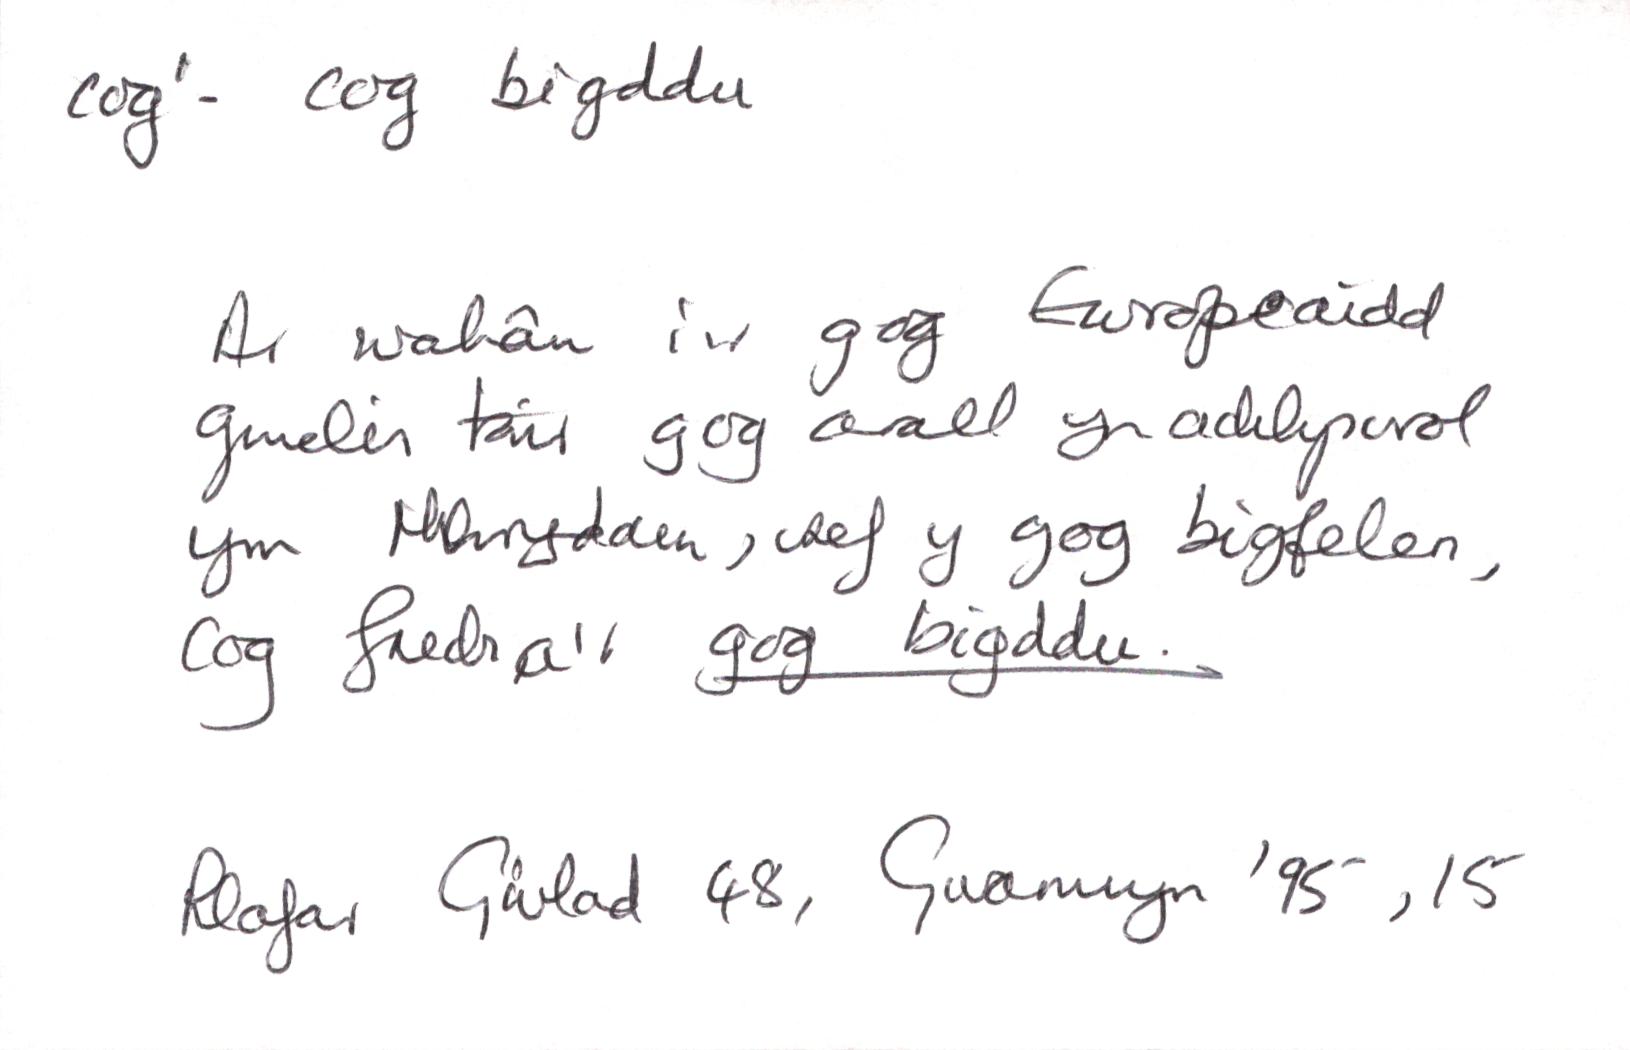 cog¹- cog bigddu
Ar wahân i'r gog Ewropeaidd
gwelir tair gog arall yn achlysurol
ym Mhrydain, sef y gog bigfelen,
cog fredr a'r gog bigddu.
Llafar Gwlad 48, Gwanwyn '95, 15